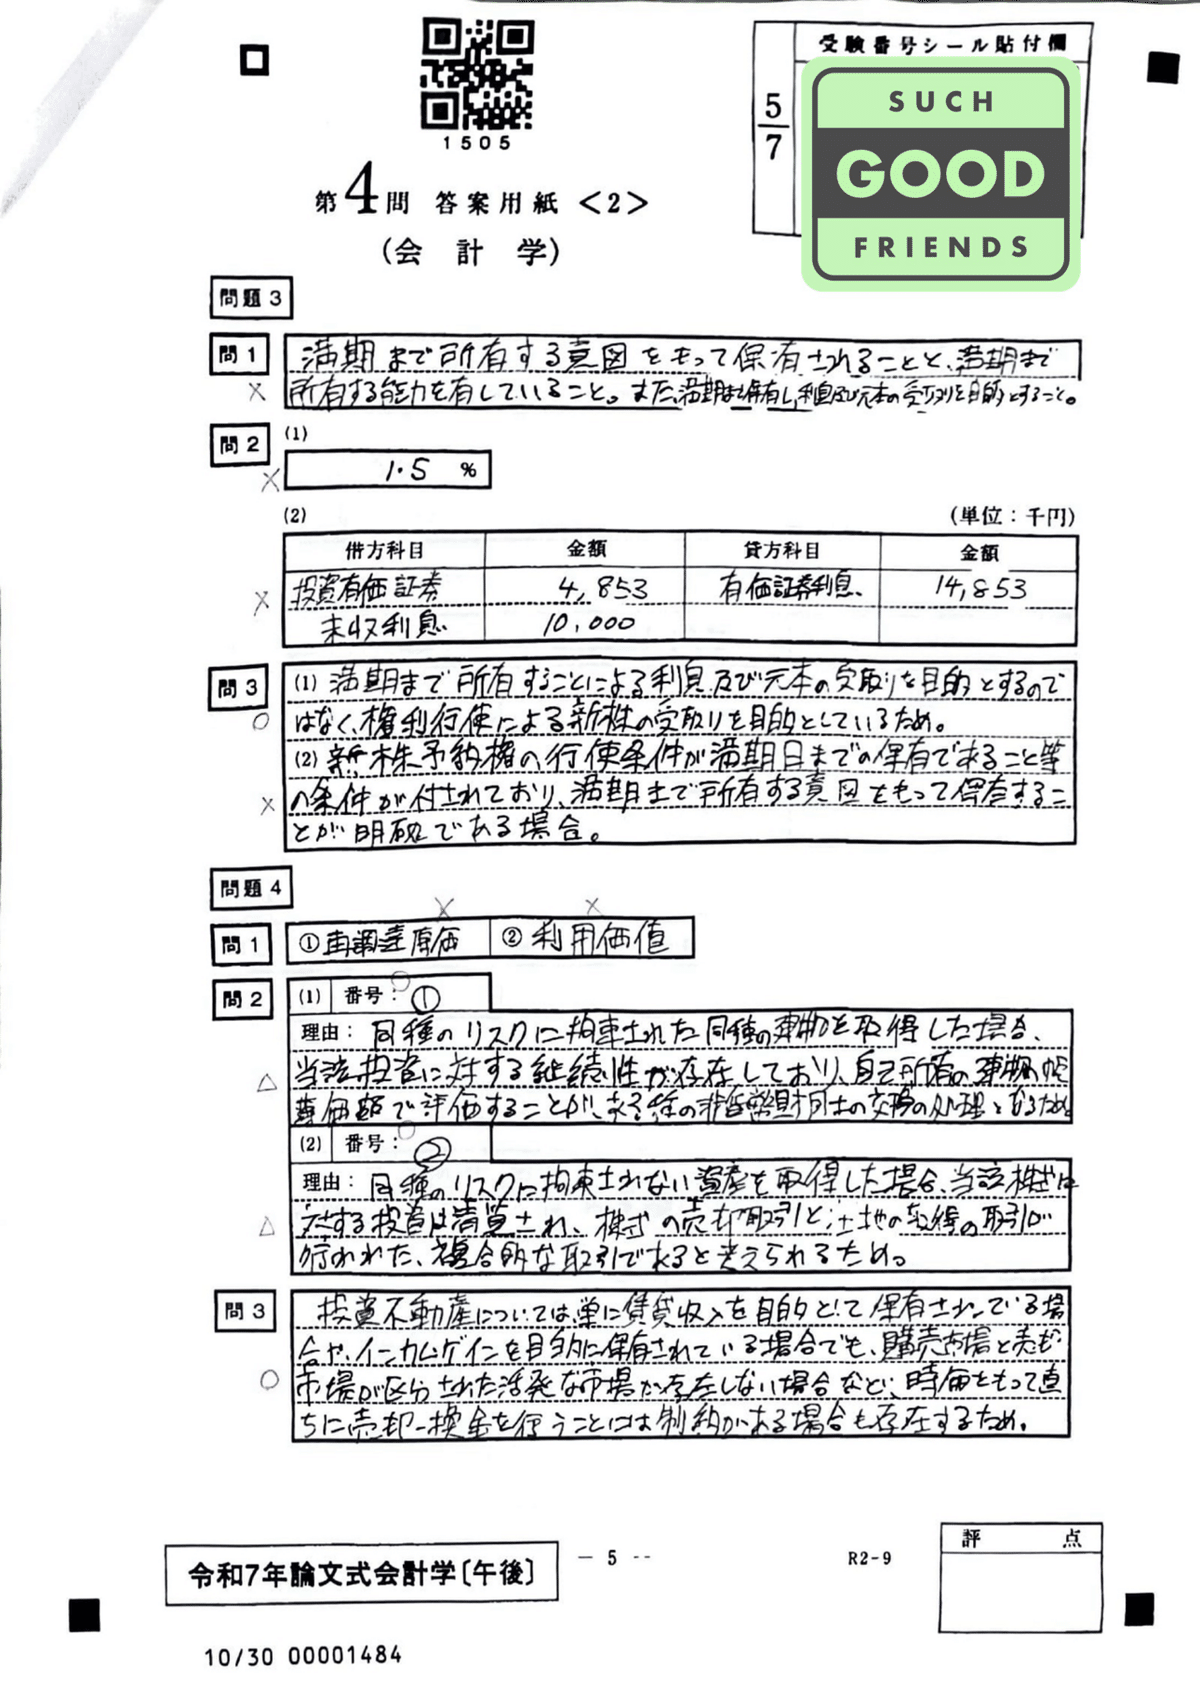 受験番号シール貼付欄
5/7
SUCH
GOOD
FRIENDS
1505
第4問 答案用紙 <2>
(会計学)
問題3
問1
満期まで所有する意図をもって保有されることと、満期まで
所有する能力を有していること。また、満期まで保有し、利息及び元本の受取りを目的とすること。
×
問2
(1)
1.5 %
×
(2)
(単位:千円)
借方科目 金額 貸方科目 金額
投資有価証券 4,853 有価証券利息 14,853
未収利息 10,000
×
問3
(1) 満期まで所有することによる利息及び元本の受取りを目的とするので
はなく、権利行使による新株の受取りを目的としているため。
○
(2) 新株予約権の行使条件が満期日までの保有であること等
の条件が付されており、満期まで所有する意図をもって保有するこ
とが明確である場合。
×
問題4
× ×
問1
①再調達原価 ②利用価値
問2
(1) 番号: ① ○
理由: 同種のリスクに拘束された同種の建物を取得した場合、
当該投資に対する継続性が存在しており、自己所有の建物の
価額で評価することが、
の交換の処理となるため
△
(2) 番号: ② ○
理由: 同種のリスクに拘束されない資産を取得した場合、当該株式に
対する投資は清算され、株式の売却取引と土地の取得の取引が
行われた、複合的な取引であると考えられるため。
△
問3
投資不動産については単に賃貸収入を目的として保有されている場
合や、インカムゲインを目的に保有されている場合でも、購売市場と売却
市場が区分された活発な市場が存在しない場合など、時価をもって直
ちに売却・換金を行うことには制約がある場合も存在するため。
○
令和7年論文式会計学〔午後〕
- 5 --
R2-9
評点
10/30 00001484